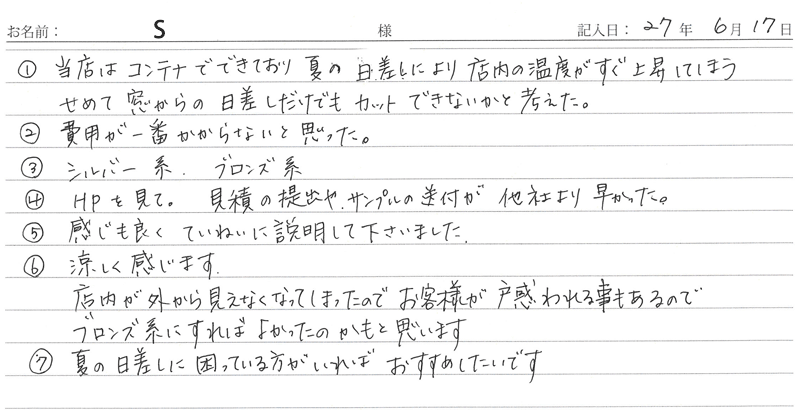 お名前： S 様 記入日：27年 6月17日
① 当店は コンテナでできており 夏の 日差しにより 店内の温度がすぐ上昇してしまう
せめて 窓からの 日差しだけでも カット できないかと 考えた。
② 費用が一番かからないと思った。
③ シルバー系. ブロンズ系
④ HPを見て。 見積の提出や、サンプルの送付が 他社より 早かった。
⑤ 感じも良く ていねいに説明して下さいました.
⑥ 涼しく感じます.
店内が外から見えなくなってしまったので お客様が 戸惑われる事もあるので
ブロンズ系にすれば よかったのかもと思います
⑦ 夏の日差しに 困っている方がいれば おすすめしたいです